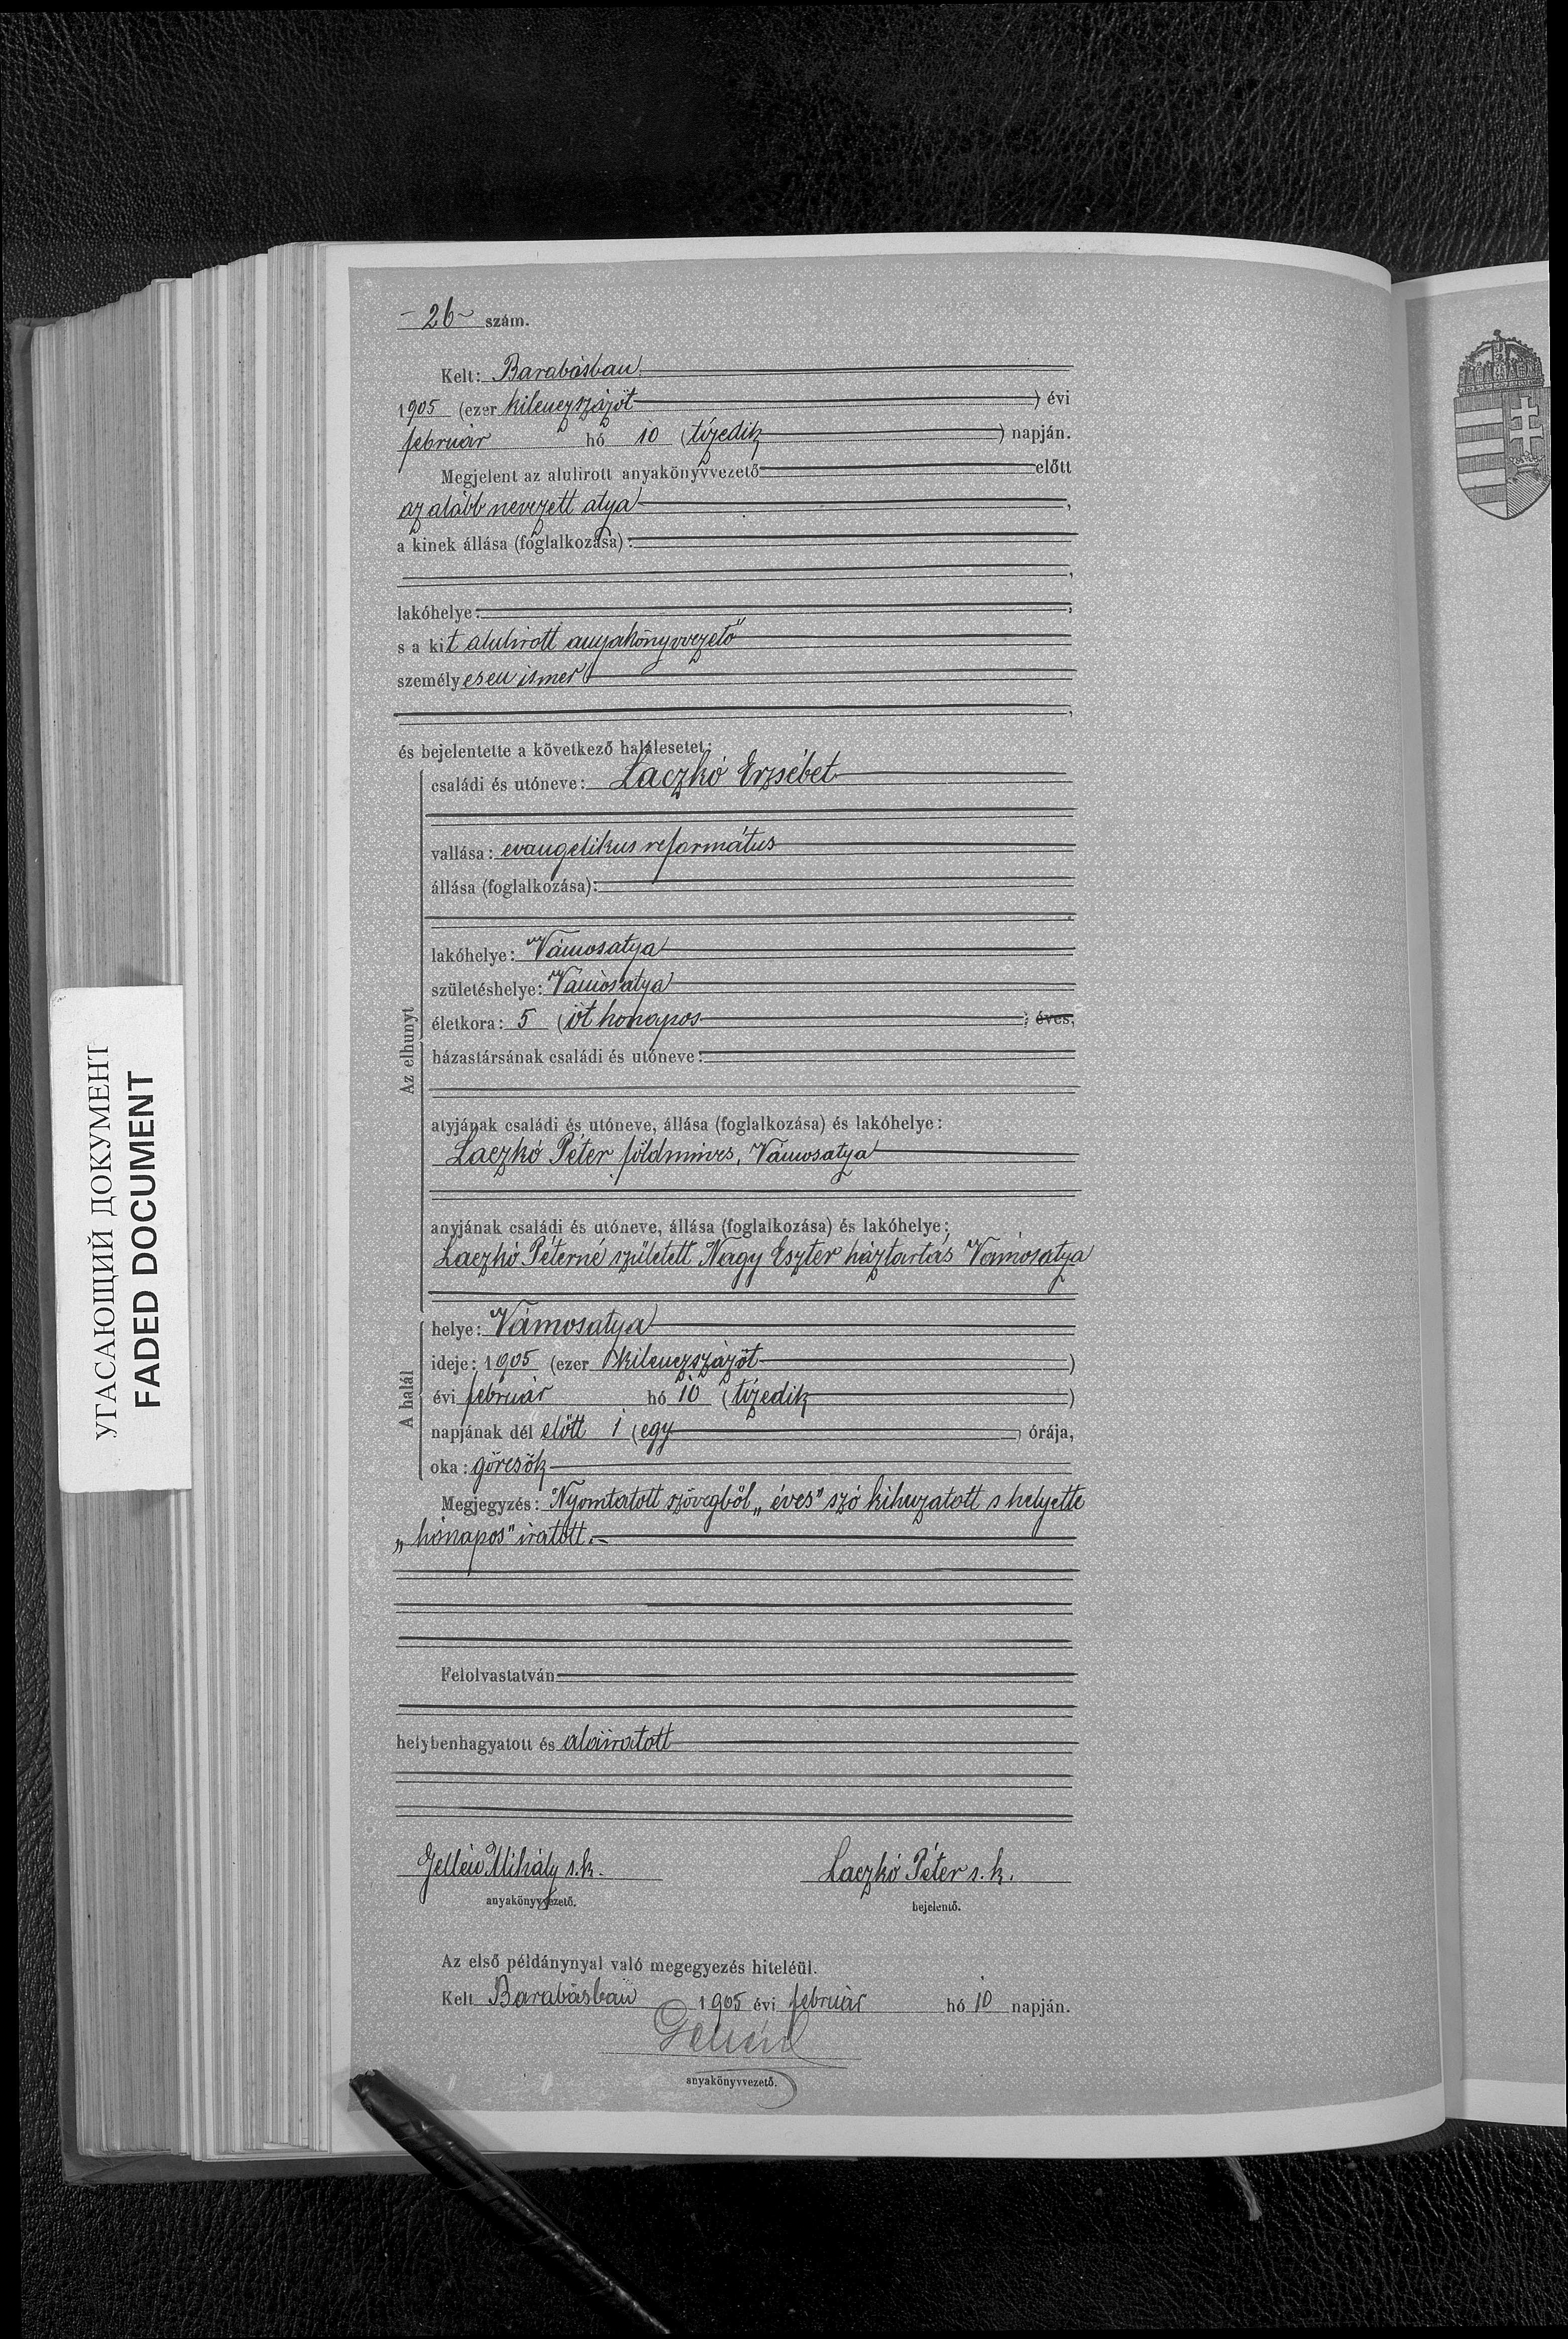 - 26 - szám.
Kelt: Barabásban
1905 (ezer kilenczszázöt ) évi
február hó 10 (tizedik ) napján.
Megjelent az alulirott anyakönyvvezető előtt
az alább nevezett atya ,
a kinek állása (foglalkozása) :
,
lakóhelye : ,
s a kit alulirott anyakönyvvezető
személyesen ismer
,
és bejelentette a következő halálesetet :
Az elhunyt
családi és utóneve : Laczkó Erzsébet
vallása : evangelikus református
állása (foglalkozása) :
lakóhelye : Vámosatya
születéshelye : Vámosatya
életkora : 5 (öt honapos ) éves,
házastársának családi és utóneve :
atyjának családi és utóneve, állása (foglalkozása) és lakóhelye :
Laczkó Péter földmives, Vámosatya
anyjának családi és utóneve, állása (foglalkozása) és lakóhelye :
Laczkó Péterné született Nagy Eszter háztartás Vámosatya
A halál
helye : Vámosatya
ideje : 1905 (ezer kilenczszázöt )
évi február hó 10 (tizedik )
napjának dél előtt 1 (egy ) órája,
oka : görcsök
Megjegyzés : Nyomtatott szövegből „éves" szó kihuzatott s helyette
„hónapos" iratott. -
Felolvastatván
helybenhagyatott és aláiratott
Gellén Mihály s.k.
anyakönyvvezető.
Laczkó Péter s.k.
bejelentő.
Az első példánynyal való megegyezés hiteléül.
Kelt Barabásban 1905 évi február hó 10 napján.
Gellén
anyakönyvvezető.
УГАСАЮЩИЙ ДОКУМЕНТ
FADED DOCUMENT